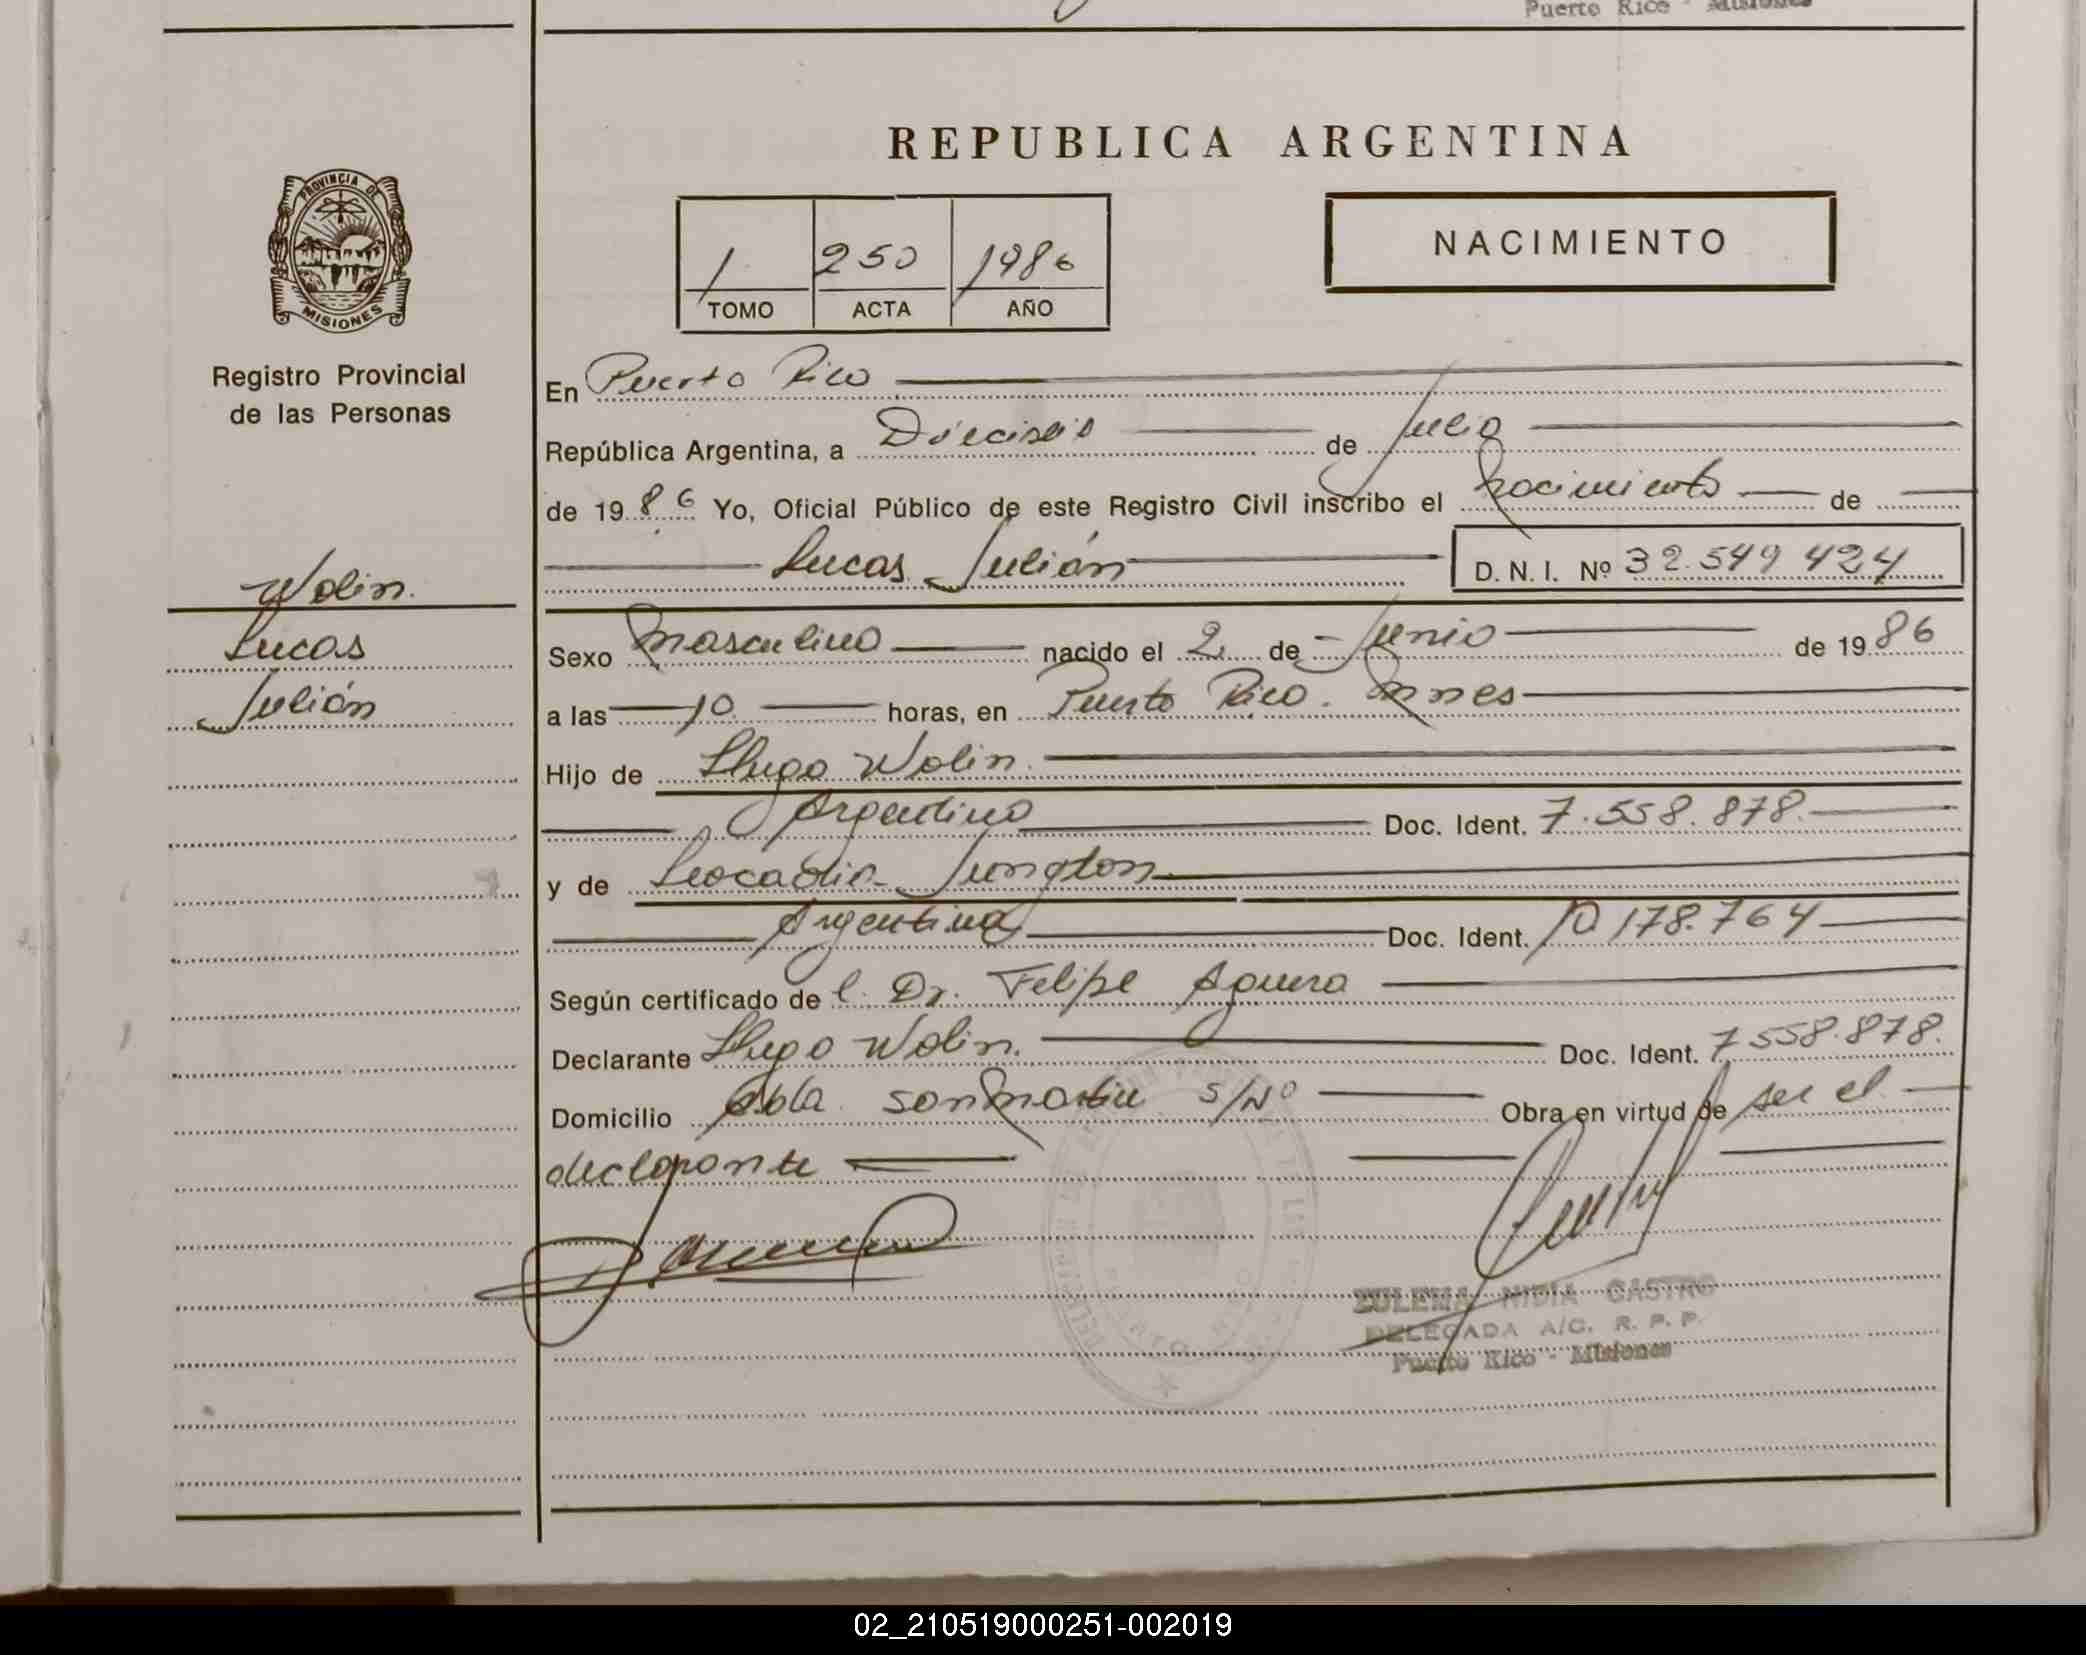 Puerto Rico - Misiones
REPUBLICA ARGENTINA
PROVINCIA DE
MISIONES
Registro Provincial
de las Personas
1 250 1986
TOMO ACTA AÑO
NACIMIENTO
En Puerto Rico
República Argentina, a Dieciséis de Julio
de 1986 Yo, Oficial Público de este Registro Civil inscribo el nacimiento de
Lucas Julián D. N. I. Nº 32.549 424
Wolin.
Lucas
Julián
Sexo masculino nacido el 2 de Junio de 1986
a las 10 horas, en Puerto Rico. Mnes
Hijo de Hugo Wolin.
Argentino Doc. Ident. 7.558.878.
y de Leocadia Jungton
Argentina Doc. Ident. 10 178.764
Según certificado de l. Dr. Felipe Aguera
Declarante Hugo Wolin. Doc. Ident. 7 558.878.
Domicilio Cbla. San Martin S/Nº Obra en virtud de ser el
declarante
ZULEMA NIDIA CASTRO
DELEGADA A/C. R. P. P.
Puerto Rico - Misiones
02_210519000251-002019